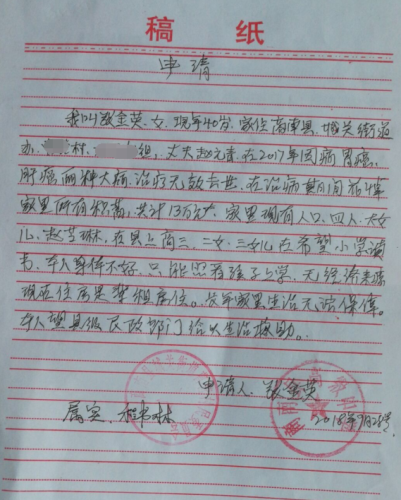 稿纸
申请
我叫张金英、女、现年40岁、家住商南县、城关街道
办、村、组,丈夫赵元青、在2017年因病胃癌、
肝癌两种大病治疗无效去世、在治病期间花掉
家里所有积蓄、共计13万元、家里现有人口、四人、大女
儿、赵艺琳、在县上高三、二女、三女儿在希望小学读
书、本人身体不好、只能照看孩子上学、无经济来源
现在住房是租房住。家里生活无法保障。
本人望县级民政部门给以生活救助。
申请人、张金英
属实、林
2018年9月25号